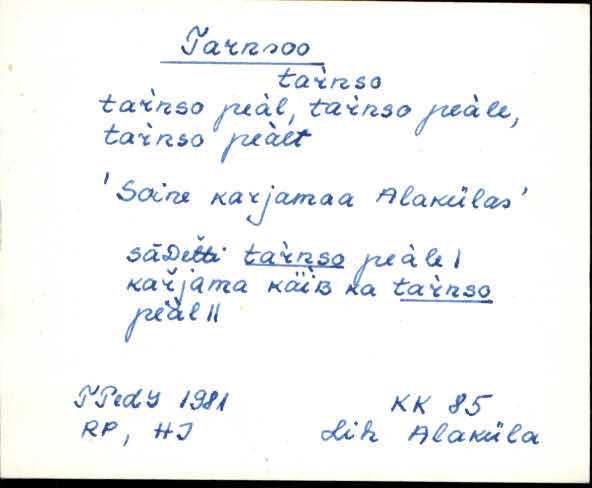 Tarnsoo
tar̀nso
tar̀nso peàl, tar̀nso peàle,
tar̀nso peàlt
'Soine karjamaa Alakülas'
sāDetti tar̀nso peàle|
kar̆jama käìB ka tar̀nso
peàl||
TPedI 1981 KK 85
RP, HJ Lih Alaküla